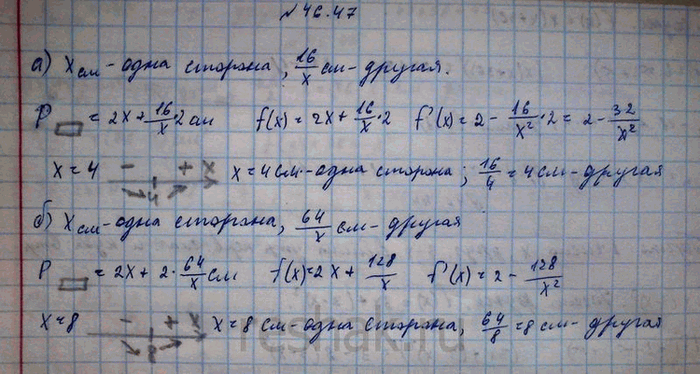 №46.47
а) x см - одна сторона, 16/x см - другая.
P▭ = 2x + 16/x · 2 см f(x) = 2x + 16/x · 2 f'(x) = 2 - 16/x² · 2 = 2 - 32/x²
x = 4 - + x 4 x = 4 см - одна сторона; 16/4 = 4 см - другая
б) x см - одна сторона, 64/x см - другая
P▭ = 2x + 2 · 64/x см f(x) = 2x + 128/x f'(x) = 2 - 128/x²
x = 8 - + x 8 x = 8 см - одна сторона, 64/8 = 8 см - другая
reshak.ru